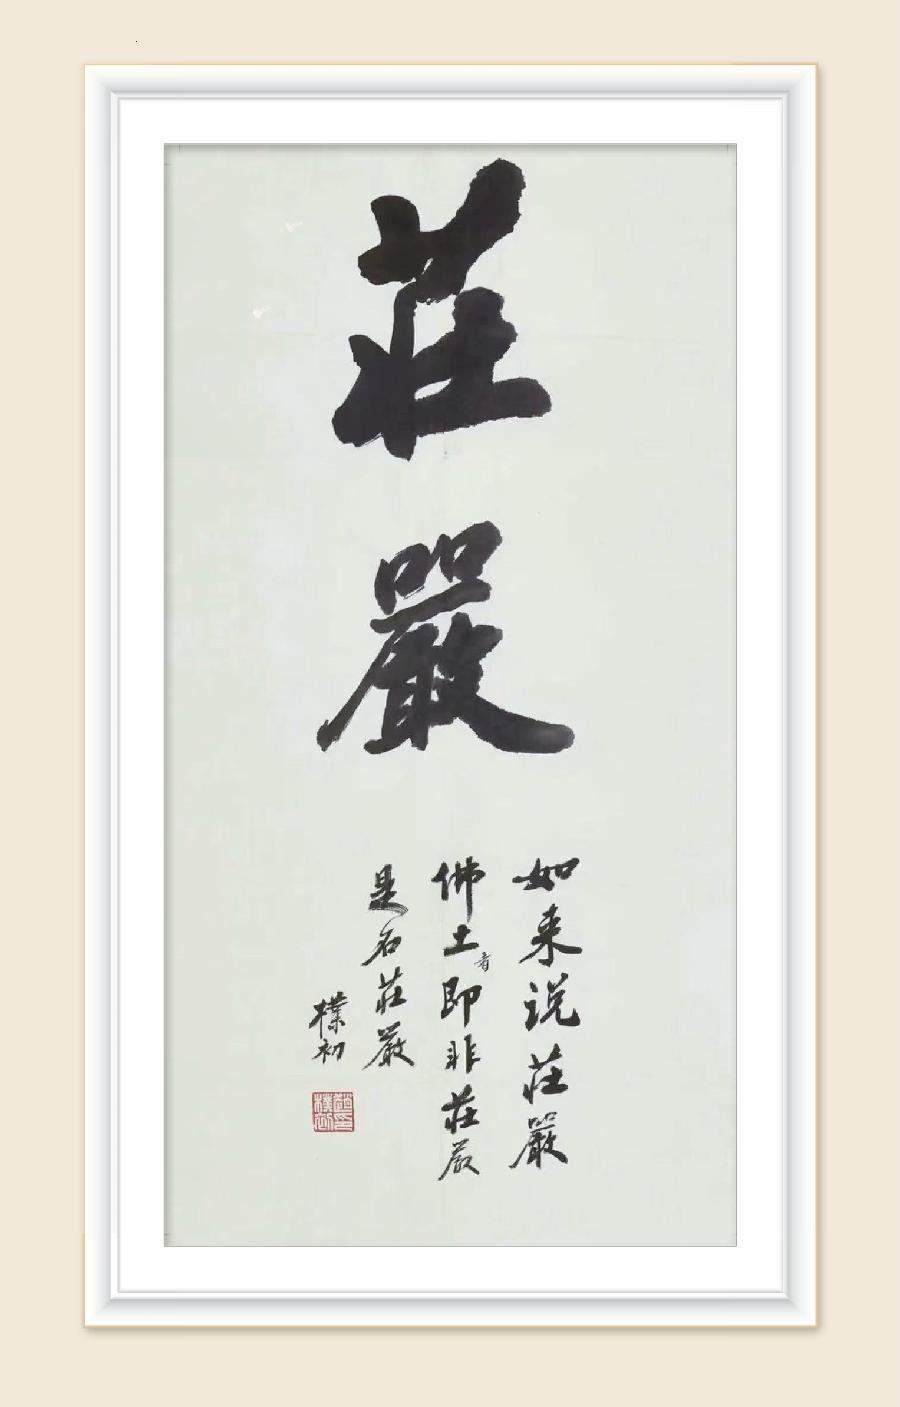 莊
嚴
如来说莊嚴
佛土者即非莊嚴
是名莊嚴
樸初
趙樸初印